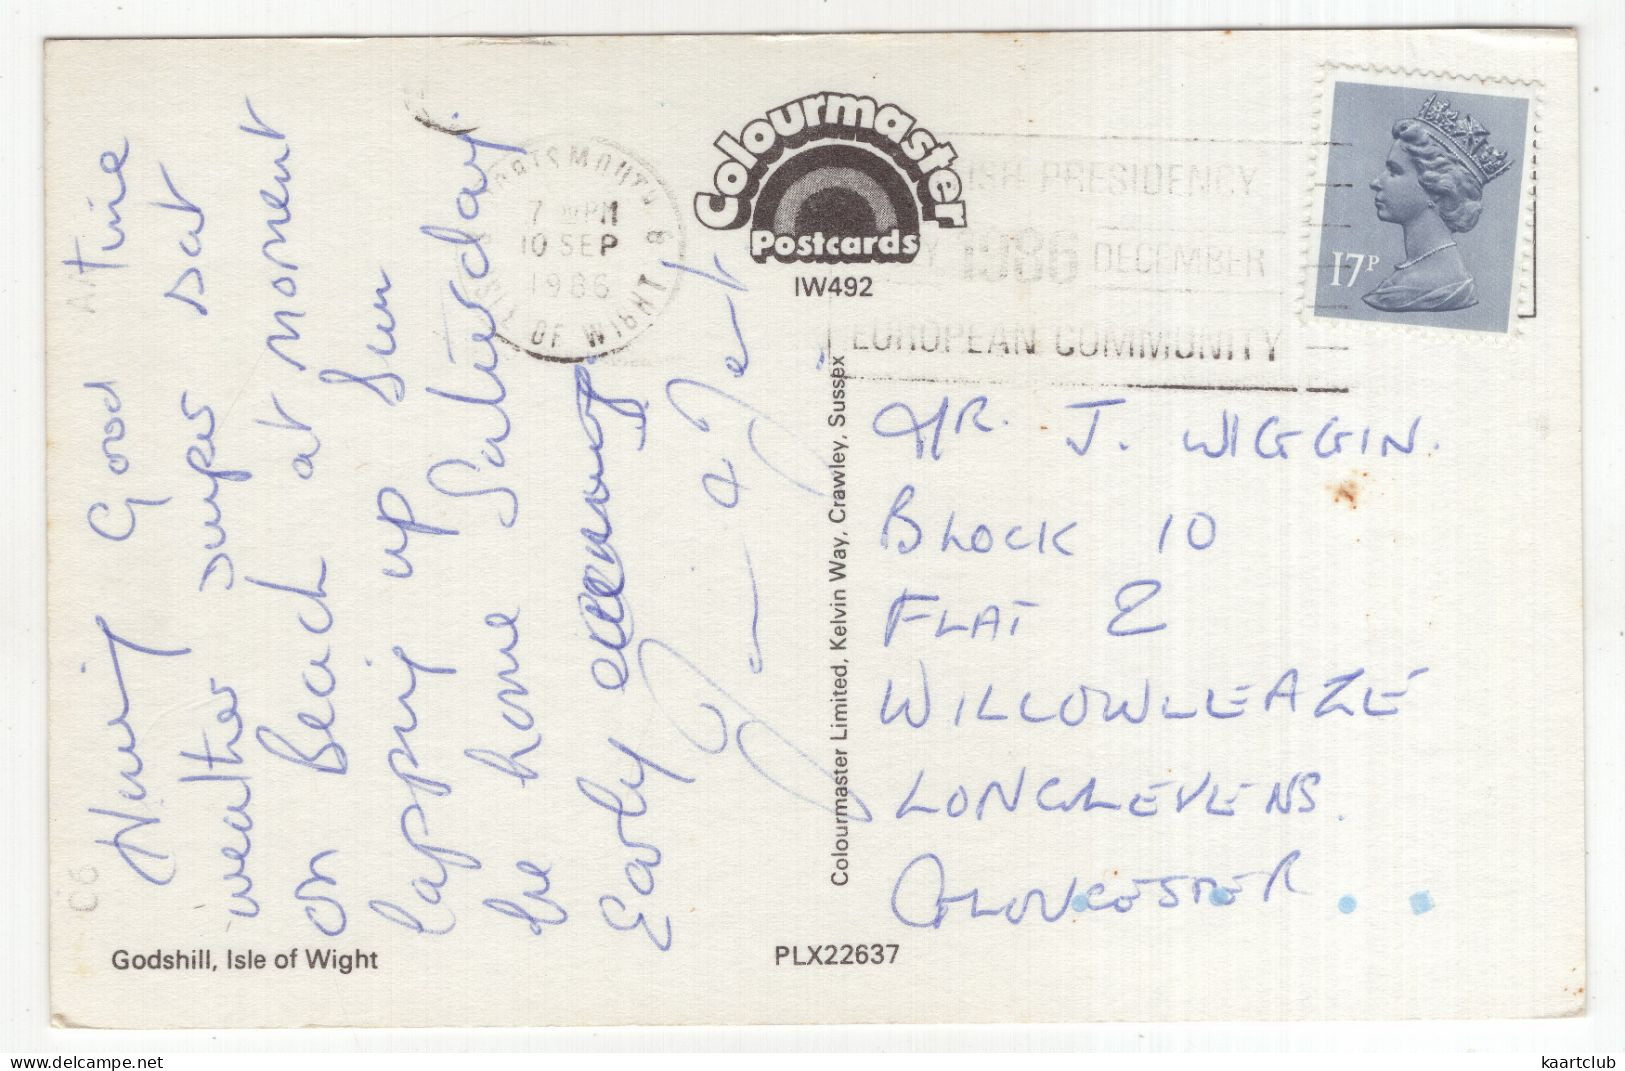 Having Good A/Time
weather super sat
on Beach at moment
lapping up Sun
be home Saturday
Early evening
Godshill, Isle of Wight
PORTSMOUTH &
7 PM
10 SEP
1986
ISLE OF WIGHT
Colourmaster
Postcards
IW492
ISH PRESIDENCY
1986 DECEMBER
EUROPEAN COMMUNITY
17P
Colourmaster Limited, Kelvin Way, Crawley, Sussex
PLX22637
MR. J. WIGGIN.
BLOCK 10
FLAT 2
WILLOWLEAZE
LONGLEVENS.
GLOUCESTER
C96
kaartclub